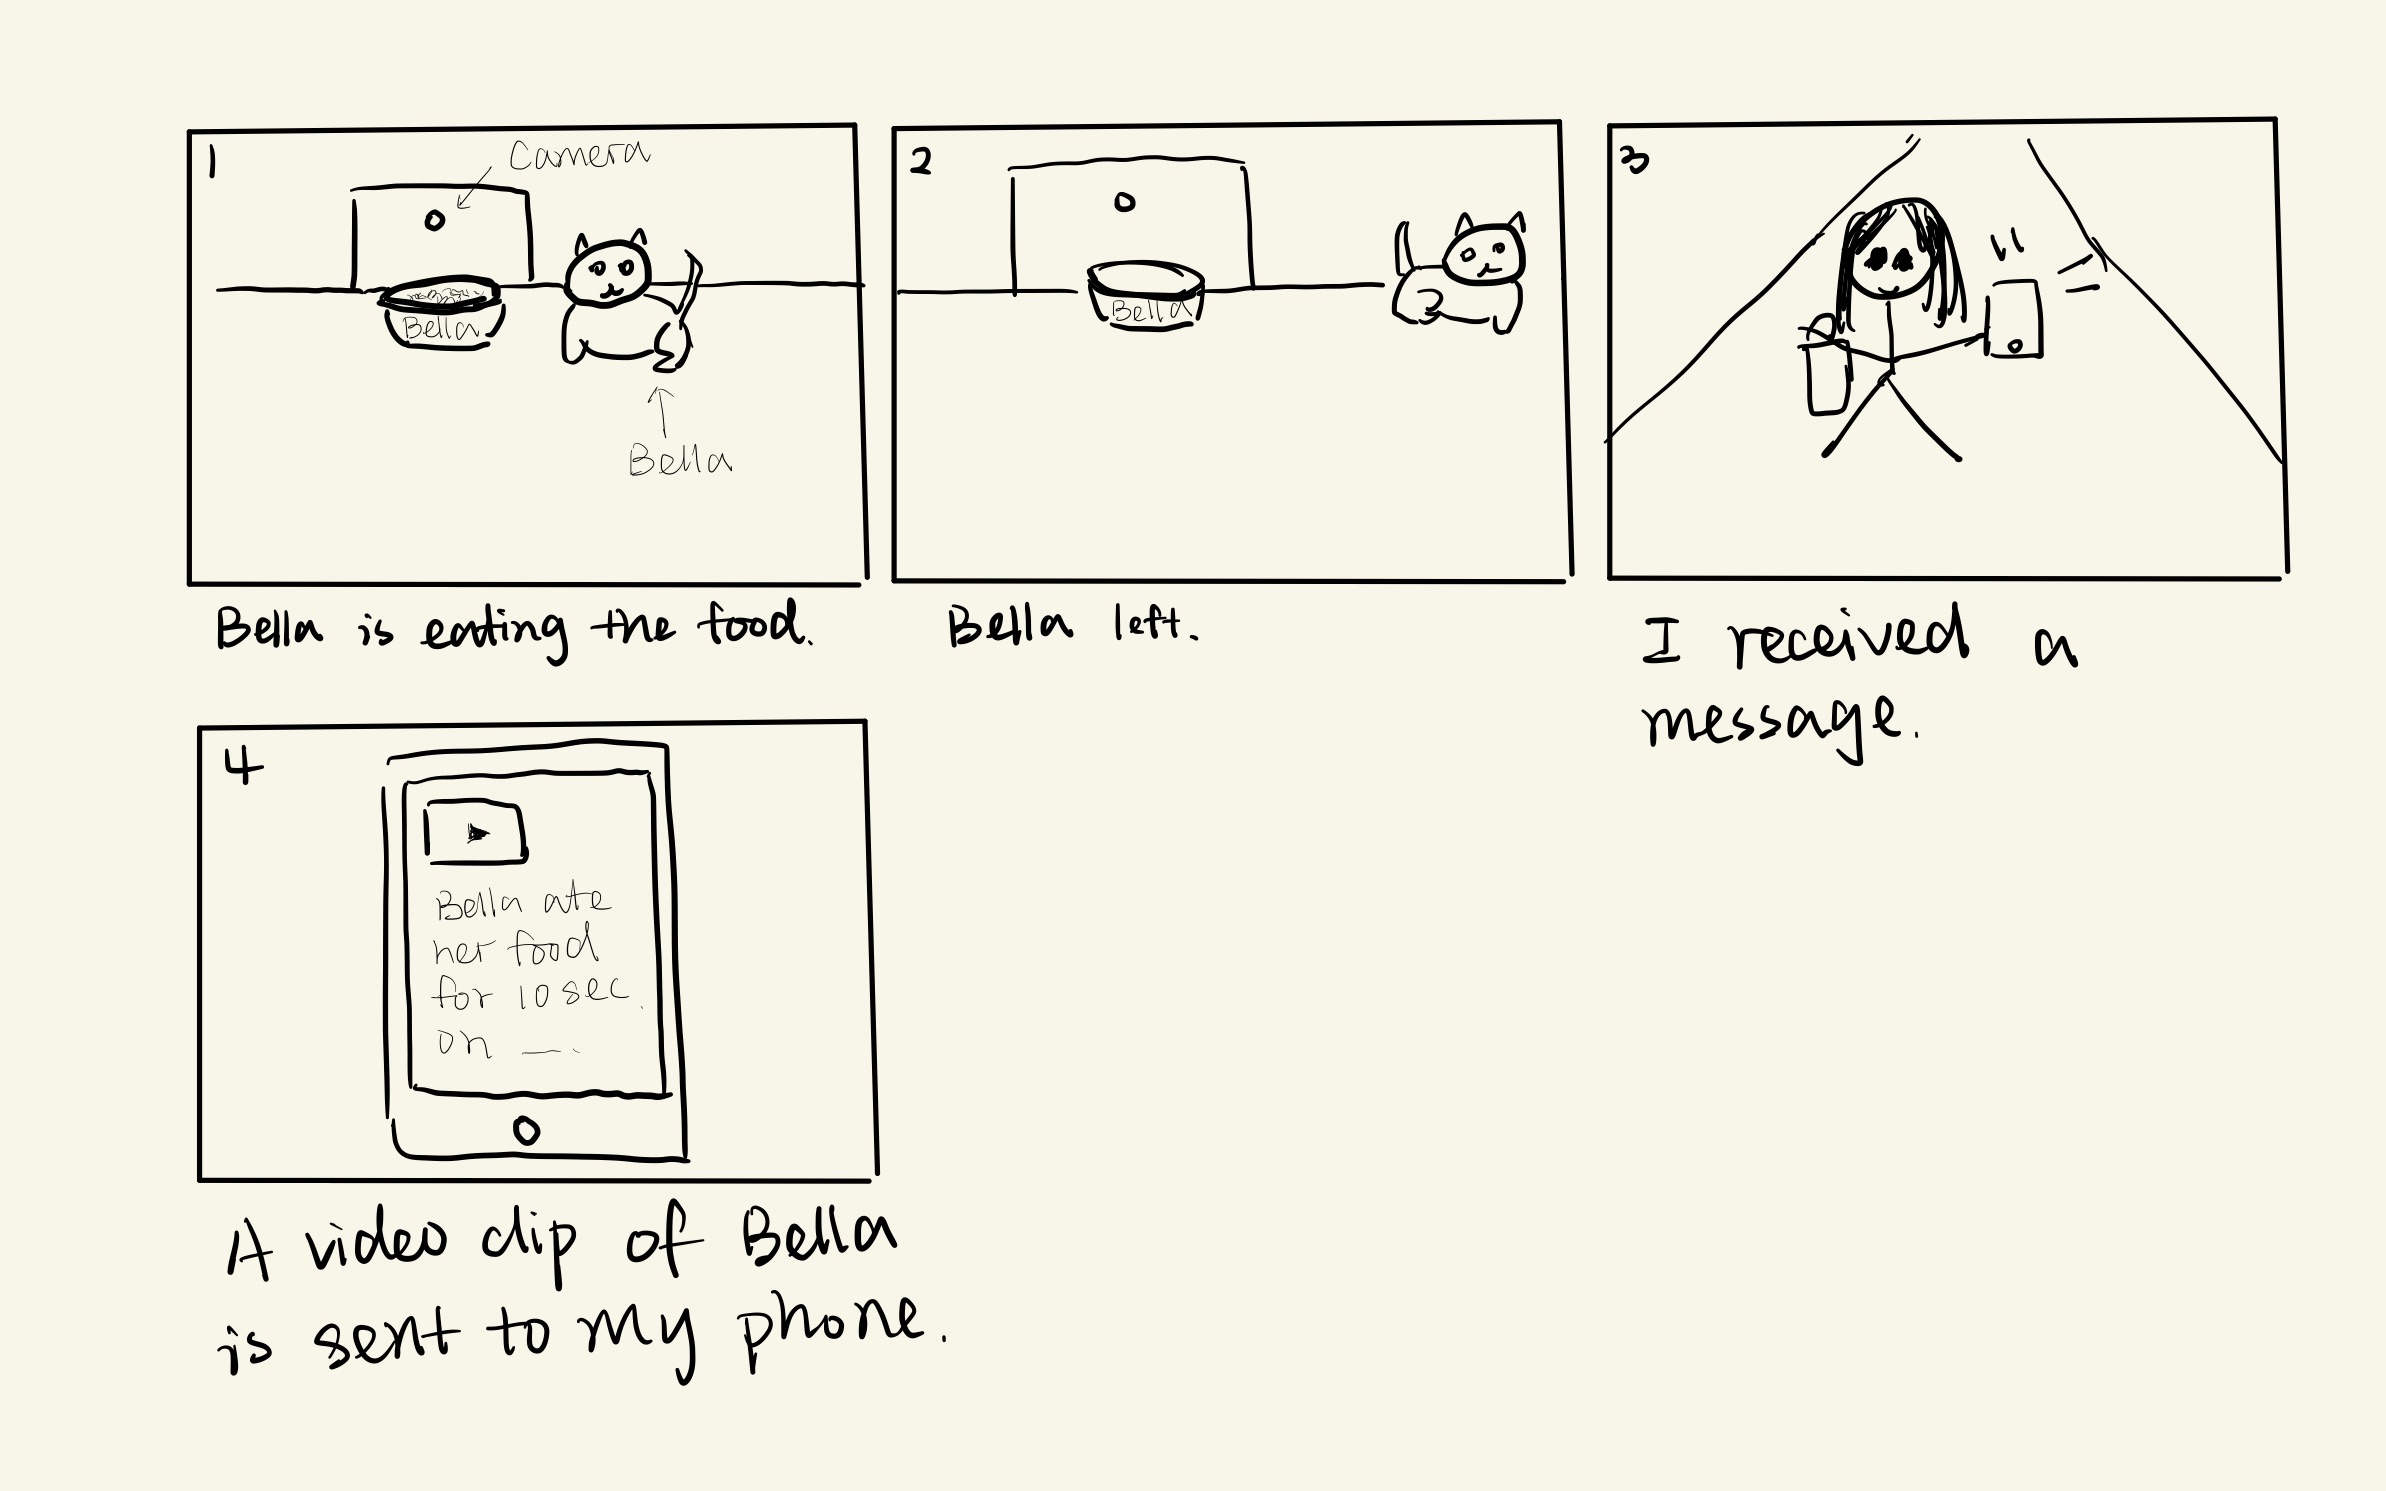 1
Camera
Bella
Bella
Bella is eating the food.
2
Bella
Bella left.
3
I received a
message.
4
Bella ate
her food
for 10 sec.
on __.
A video clip of Bella
is sent to my phone.